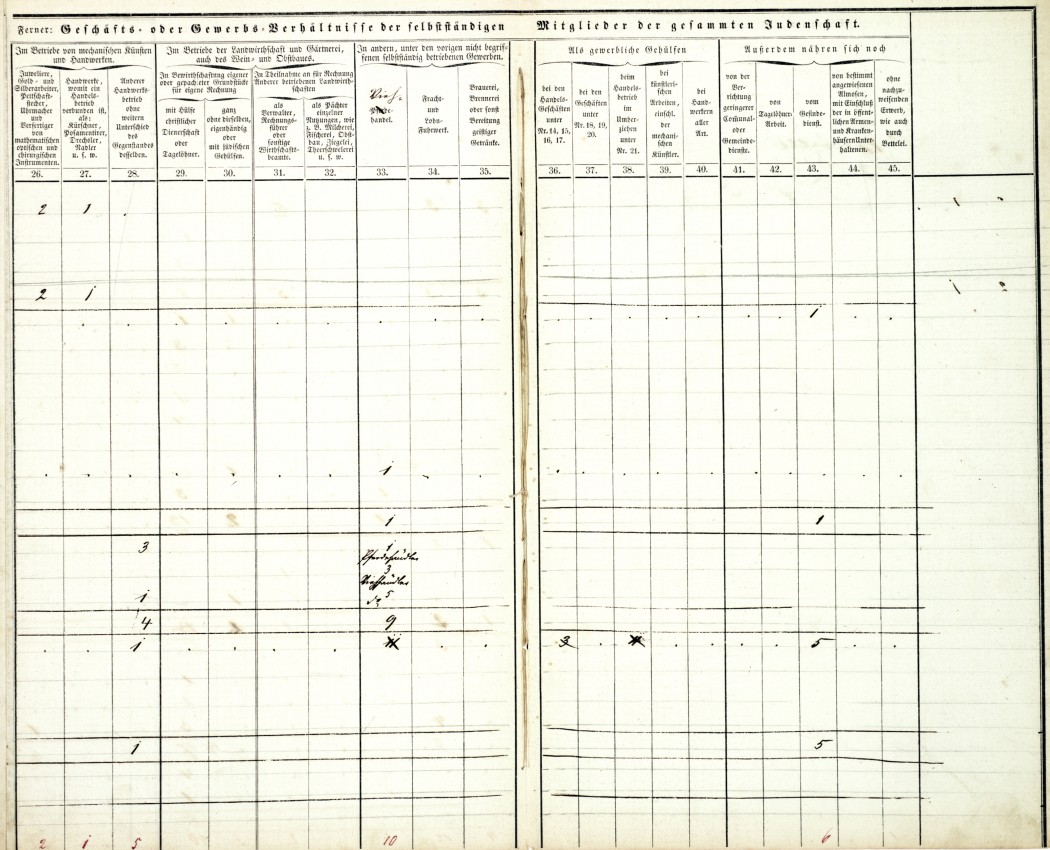 Ferner: Geschäfts- oder Gewerbs-Verhältnisse der selbstständigen Mitglieder der gesammten Judenschaft.
Im Betriebe von mechanischen Künsten
und Handwerken.
Juweliere,
Gold- und
Silberarbeiter,
Pettschaft-
stecher,
Uhrmacher
und
Verfertiger
von
mathematischen
optischen und
chirurgischen
Instrumenten.
Handwerke,
womit ein
Handels-
betrieb
verbunden ist,
als:
Kürschner,
Posamentirer,
Drechsler,
Nadler
u. s. w.
Anderer
Handwerks-
betrieb
ohne
weitern
Unterschied
des
Gegenstandes
desselben.
Im Betriebe der Landwirthschaft und Gärtnerei,
auch des Wein- und Obstbaues.
In Bewirthschaftung eigener
oder gepachteter Grundstücke
für eigene Rechnung
mit Hülfe
christlicher
Dienerschaft
oder
Tagelöhner.
ganz
ohne dieselben,
eigenhändig
oder
mit jüdischen
Gehülfen.
In Theilnahme an für Rechnung
Anderer betriebenen Landwirth-
schaften
als
Verwalter,
Rechnungs-
führer
oder
sonstige
Wirthschafts-
beamte.
als Pächter
einzelner
Nutzungen, wie
z. B. Milcherei,
Fischerei, Obst-
bau, Ziegelei,
Theerschwelerei
u. s. w.
In andern, unter den vorigen nicht begrif-
fenen selbstständig betriebenen Gewerben.
Vieh-
handel.
Fracht-
und
Lohn-
Fuhrwerk.
Brauerei,
Brennerei
oder sonst
Bereitung
geistiger
Getränke.
Als gewerbliche Gehülfen
bei den
Handels-
Geschäften
unter
Nr. 14, 15,
16, 17.
bei den
Geschäften
unter
Nr. 18, 19,
20.
beim
Handels-
betrieb
im
Umher-
ziehen
unter
Nr. 21.
bei
künstleri-
schen
Arbeiten,
einschl.
der
mechani-
schen
Künstler.
bei
Hand-
werkern
aller
Art.
Außerdem nähren sich noch
von der
Ver-
richtung
geringerer
Communal-
oder
Gemeinde-
dienste.
von
Tagelöhner-
Arbeit.
vom
Gesinde-
dienst.
von bestimmt
angewiesenen
Almosen,
mit Einschluß
der in öffent-
lichen Armen-
und Kranken-
häusern Unter-
haltenen.
ohne
nachzu-
weisenden
Erwerb,
wie auch
durch
Bettelei.
26. 27. 28. 29. 30. 31. 32. 33. 34. 35. 36. 37. 38. 39. 40. 41. 42. 43. 44. 45.
2 1 .
2 1
. . . . . . . . . . . . . . . . . 1 . .
. . . . . . . 1 . . . . . . . . . . . .
1 1
3 1
Pferdehändler
3
Viehhändler
1 do 5
4 9
. . 1 . . . . 11 . . 3 . 11 . . . . 5 . .
1 5
2 1 5 10 6